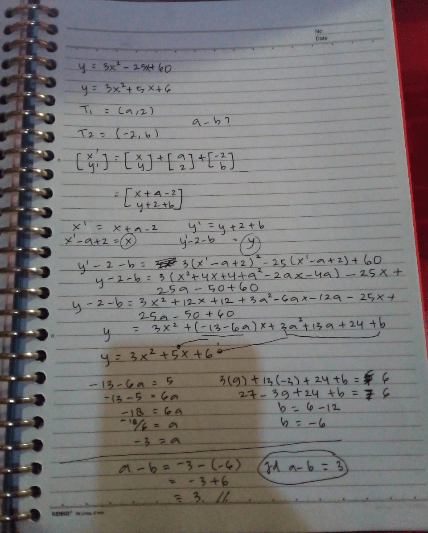 No
Date
y = 3x² - 25x + 60
y = 3x² + 5x + 6
T1 = (a, 2)
T2 = (-2, b)
a - b ?
[x' y'] = [x y] + [a 2] + [-2 b]
= [x + a - 2 y + 2 + b]
x' = x + a - 2 y' = y + 2 + b
x' - a + 2 = x y' - 2 - b = y
y' - 2 - b = 3(x' - a + 2)² - 25(x' - a + 2) + 60
y - 2 - b = 3(x² + 4x + 4 + a² - 2ax - 4a) - 25x +
25a - 50 + 60
y - 2 - b = 3x² + 12x + 12 + 3a² - 6ax - 12a - 25x +
25a - 50 + 60
y = 3x² + (-13 - 6a)x + 3a² + 13a + 24 + b
y = 3x² + 5x + 6
-13 - 6a = 5 3(9) + 13(-3) + 24 + b = 6
-13 - 5 = 6a 27 - 39 + 24 + b = 6
-18 = 6a b = 6 - 12
-18/6 = a b = -6
-3 = a
a - b = -3 - (-6) Jd a - b = 3
= -3 + 6
= 3 //